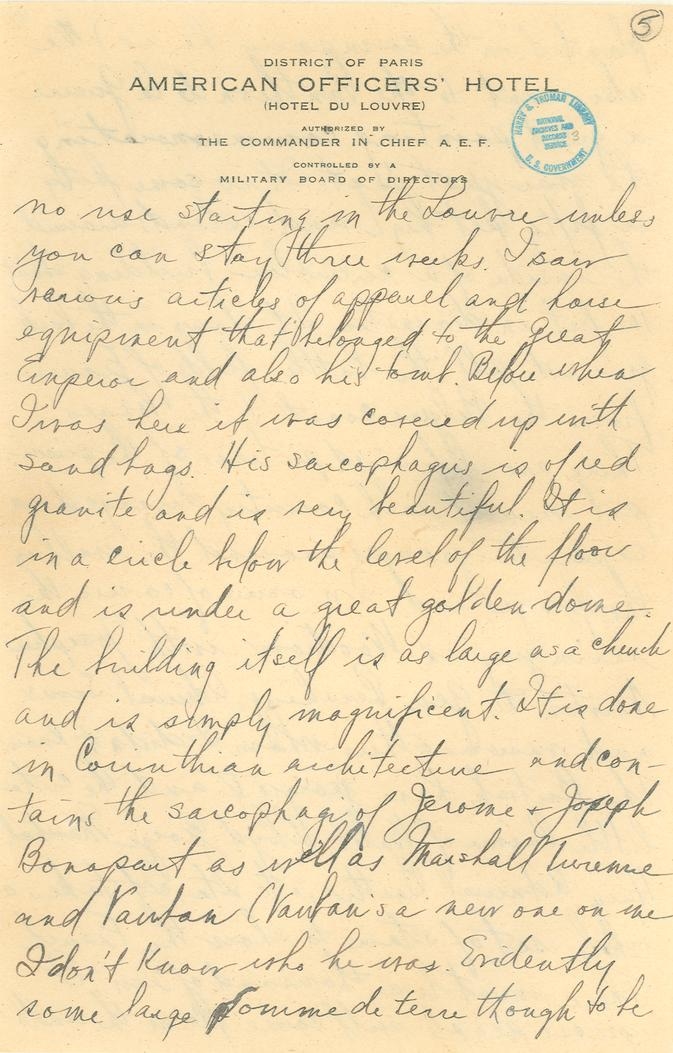 5
DISTRICT OF PARIS
AMERICAN OFFICERS' HOTEL
(HOTEL DU LOUVRE)
AUTHORIZED BY
THE COMMANDER IN CHIEF A. E. F.
CONTROLLED BY A
MILITARY BOARD OF DIRECTORS
HARRY S. TRUMAN LIBRARY
NATIONAL
ARCHIVES AND
RECORDS
SERVICE
3
U. S. GOVERNMENT
no use starting in the Louvre unless
you can stay three weeks. I saw
various articles of apparel and horse
equipment that belonged to the Great
Emperor and also his tomb. Before when
I was here it was covered up with
sand bags. His sarcophagus is of red
granite and is very beautiful. It is
in a circle below the level of the floor
and is under a great golden dome.
The building itself is as large as a church
and is simply magnificent. It is done
in Corinthian architecture and con-
tains the sarcophagi of Jerome + Joseph
Bonapart as well as Marshall Turenne
and Vauban (Vauban's a new one on me
I don't know who he was. Evidently
some large pomme de terre though to be